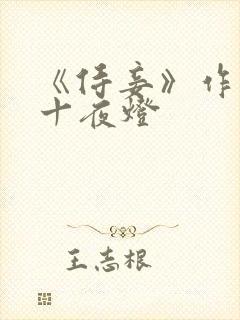 《侍妾》作
十夜燈
王志根